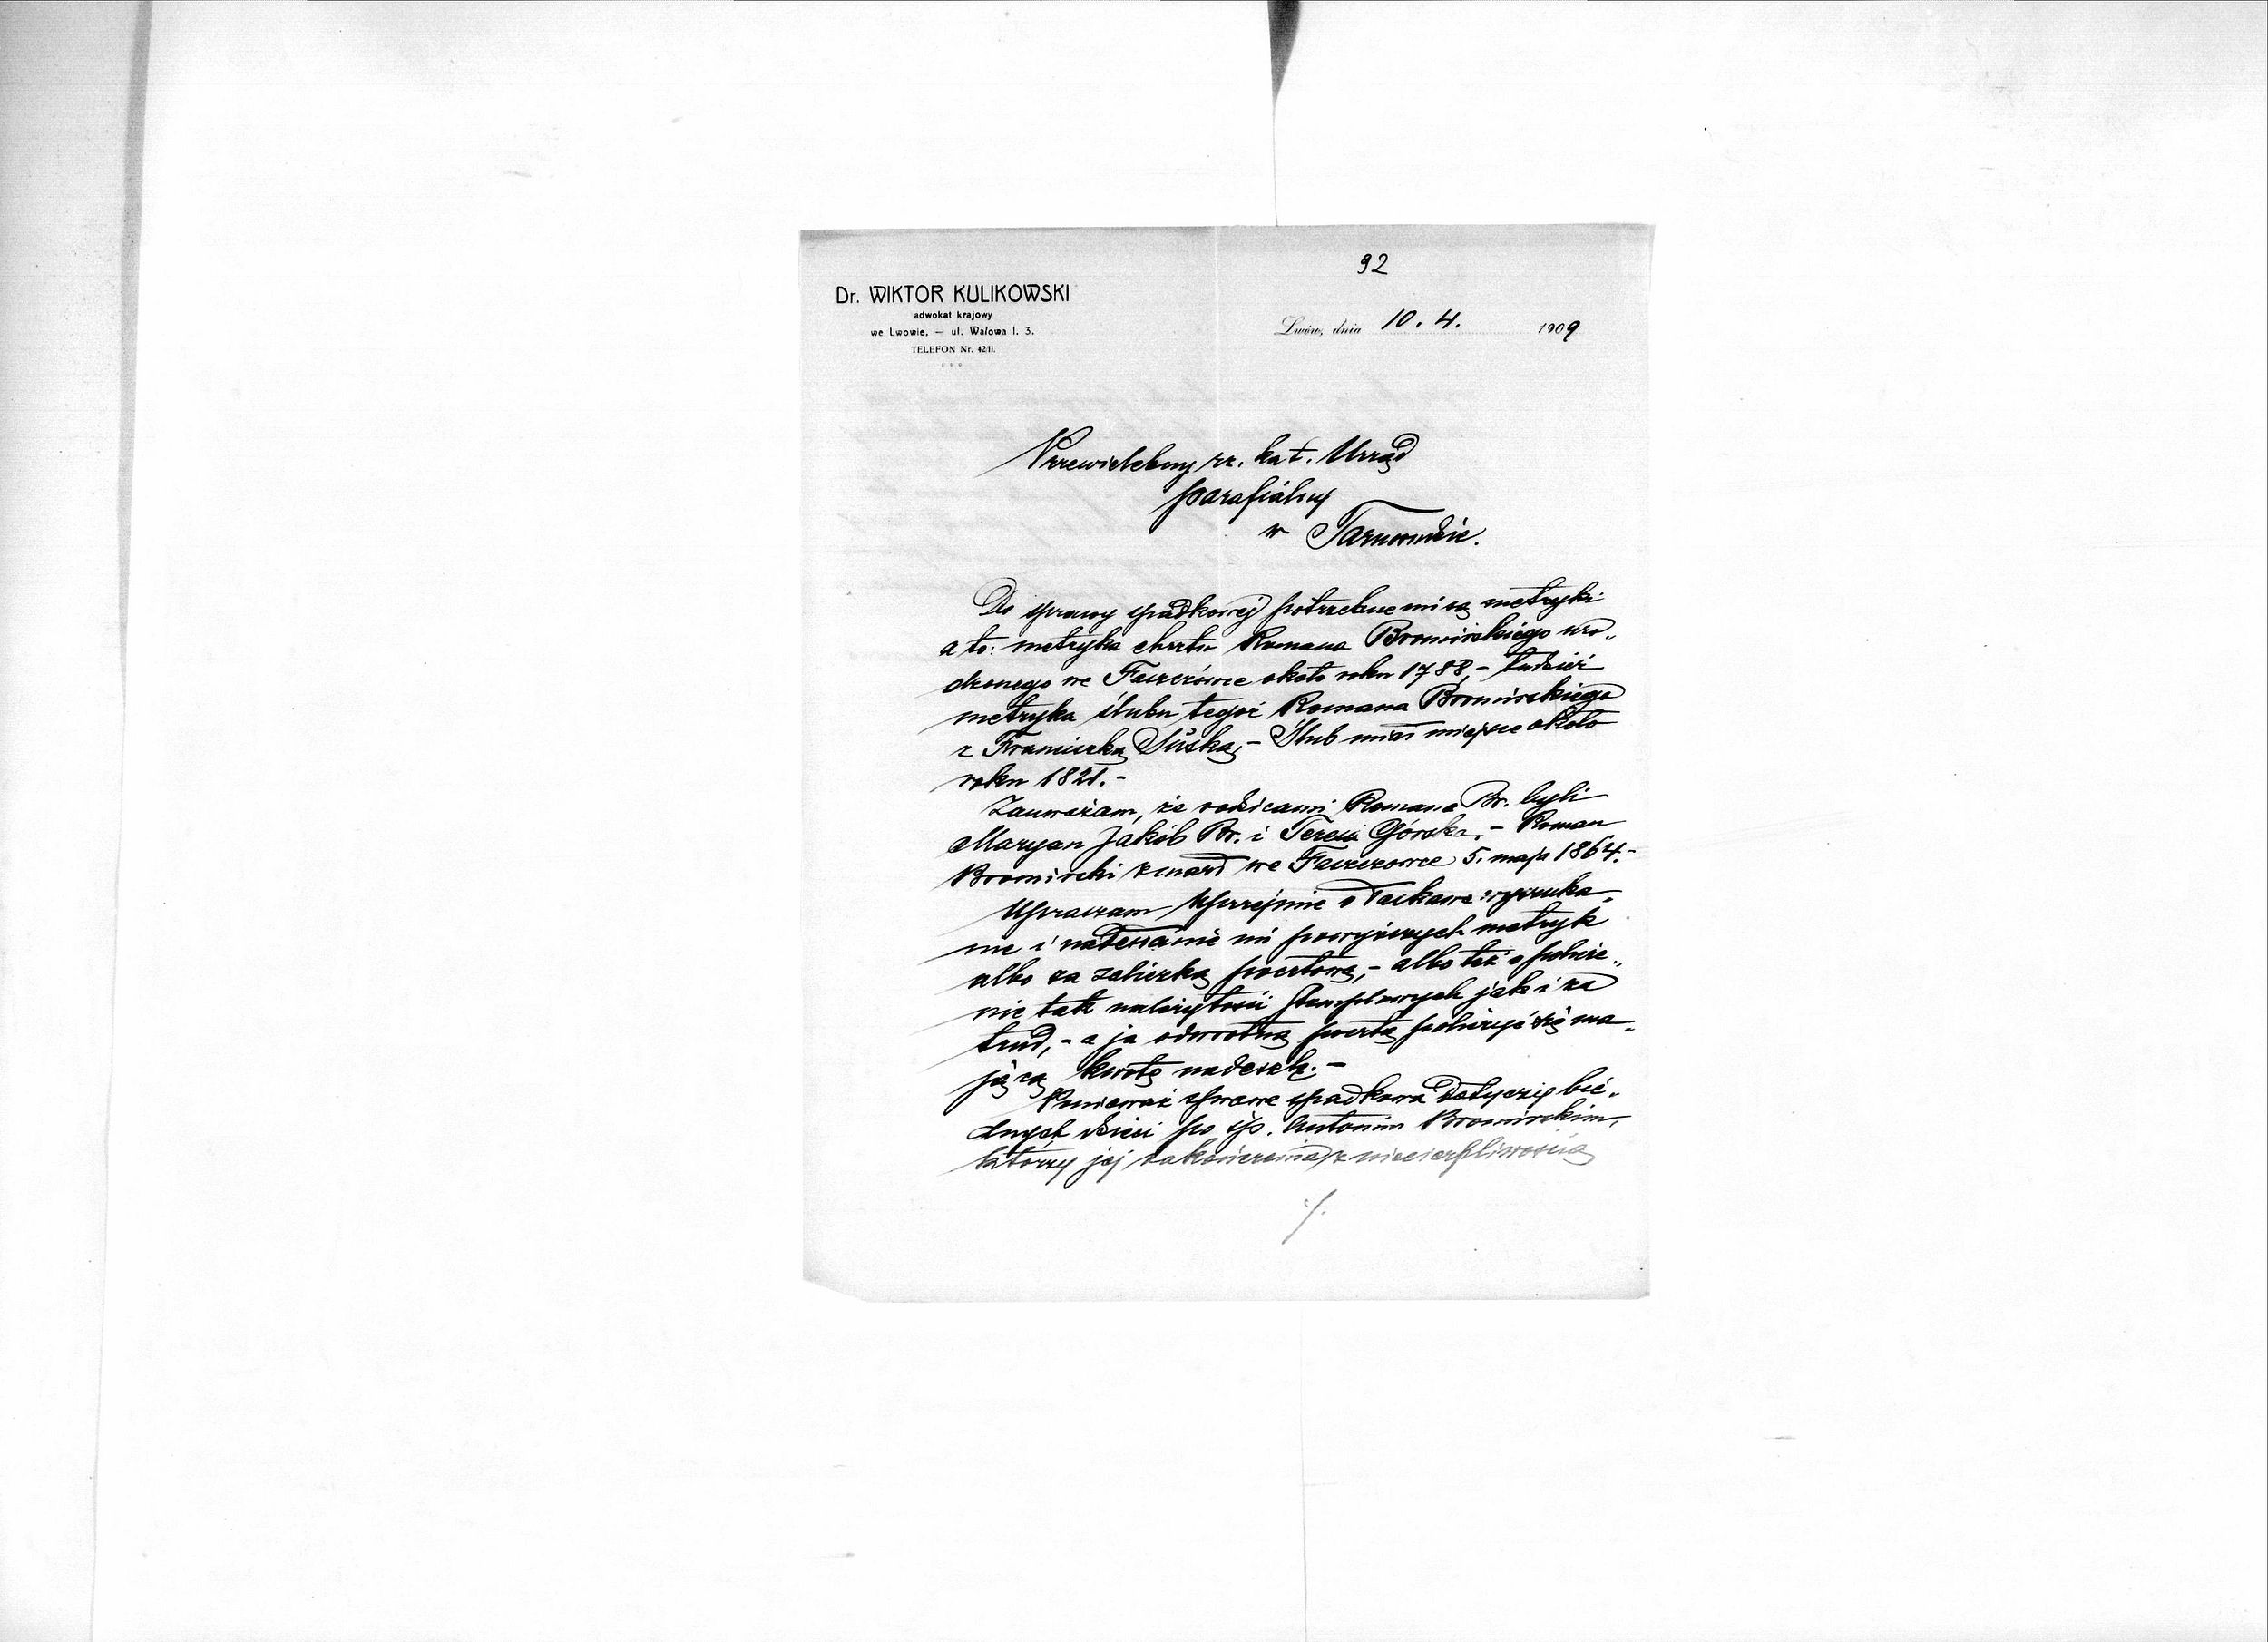 92
Dr. WIKTOR KULIKOWSKI
adwokat krajowy
we Lwowie. — ul. Wałowa l. 3.
TELEFON Nr. 42/II.
Lwów, dnia 10. 4. 1909
Przewielebny rz. kat. Urząd
parafialny
w Tarnorudzie.
Do sprawy spadkowej potrzebne mi są metryki
a to: metryka chrztu Romana Bromirskiego uro„
dzonego we Faszczówce około roku 1788, – tudzież
metryka ślubu tegoż Romana Bromirskiego
z Franciszką Suską, – Ślub miał miejsce około
roku 1821. –
Zauważam, że rodzicami Romana Br. byli
Maryan Jakób Br. i Teresa Górska, – Roman
Bromirski zmarł we Faszczowce 5. maja 1864. –
Upraszam uprzejmie o łaskawe wyszuka„
nie i nadesłanie mi powyższych metryk
albo za zaliczką pocztową, – albo też o policze„
nie tak należytości stemplowych jak i za
trud, – a ja odwrotną pocztą policzyć się ma„
jącą kwotę nadeszlę. –
Ponieważ sprawa spadkowa dotyczy bie„
dnych dzieci po śp. Antonim Bromirskim,
którzy jej zakończenia z niecierpliwością
./.